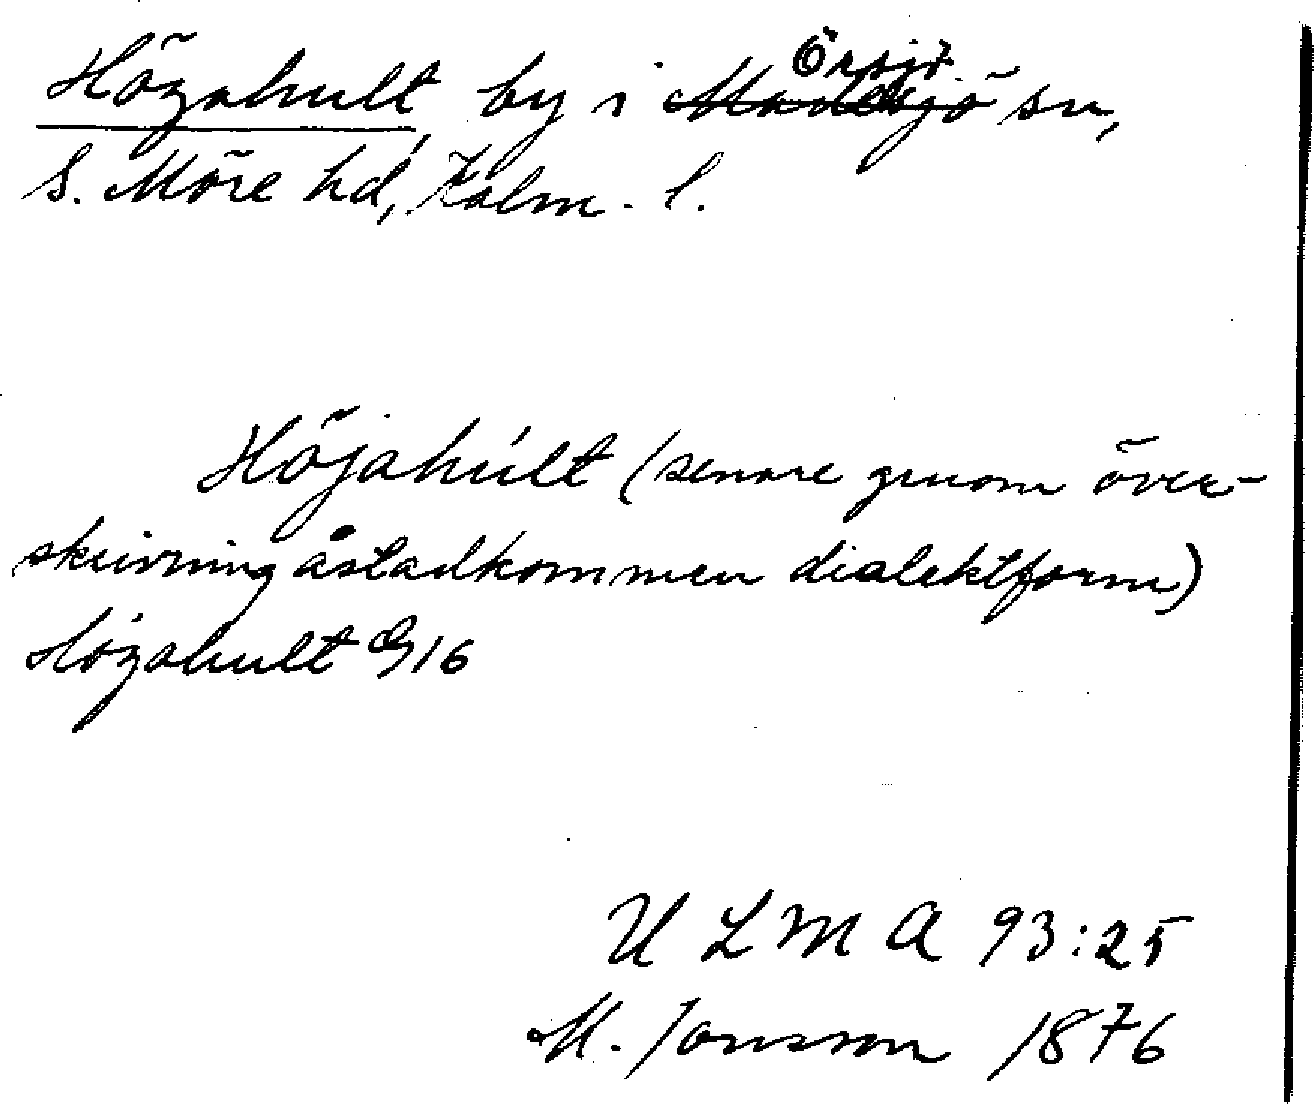 Högahult, by i Örsjö sn,
S. Möre hd, Kalm. l.
Höjahúlt (senare genom över-
skrivning åstadkommen dialektform)
Högahult G 16
ULMA 93:25
M. Jonsson 1876